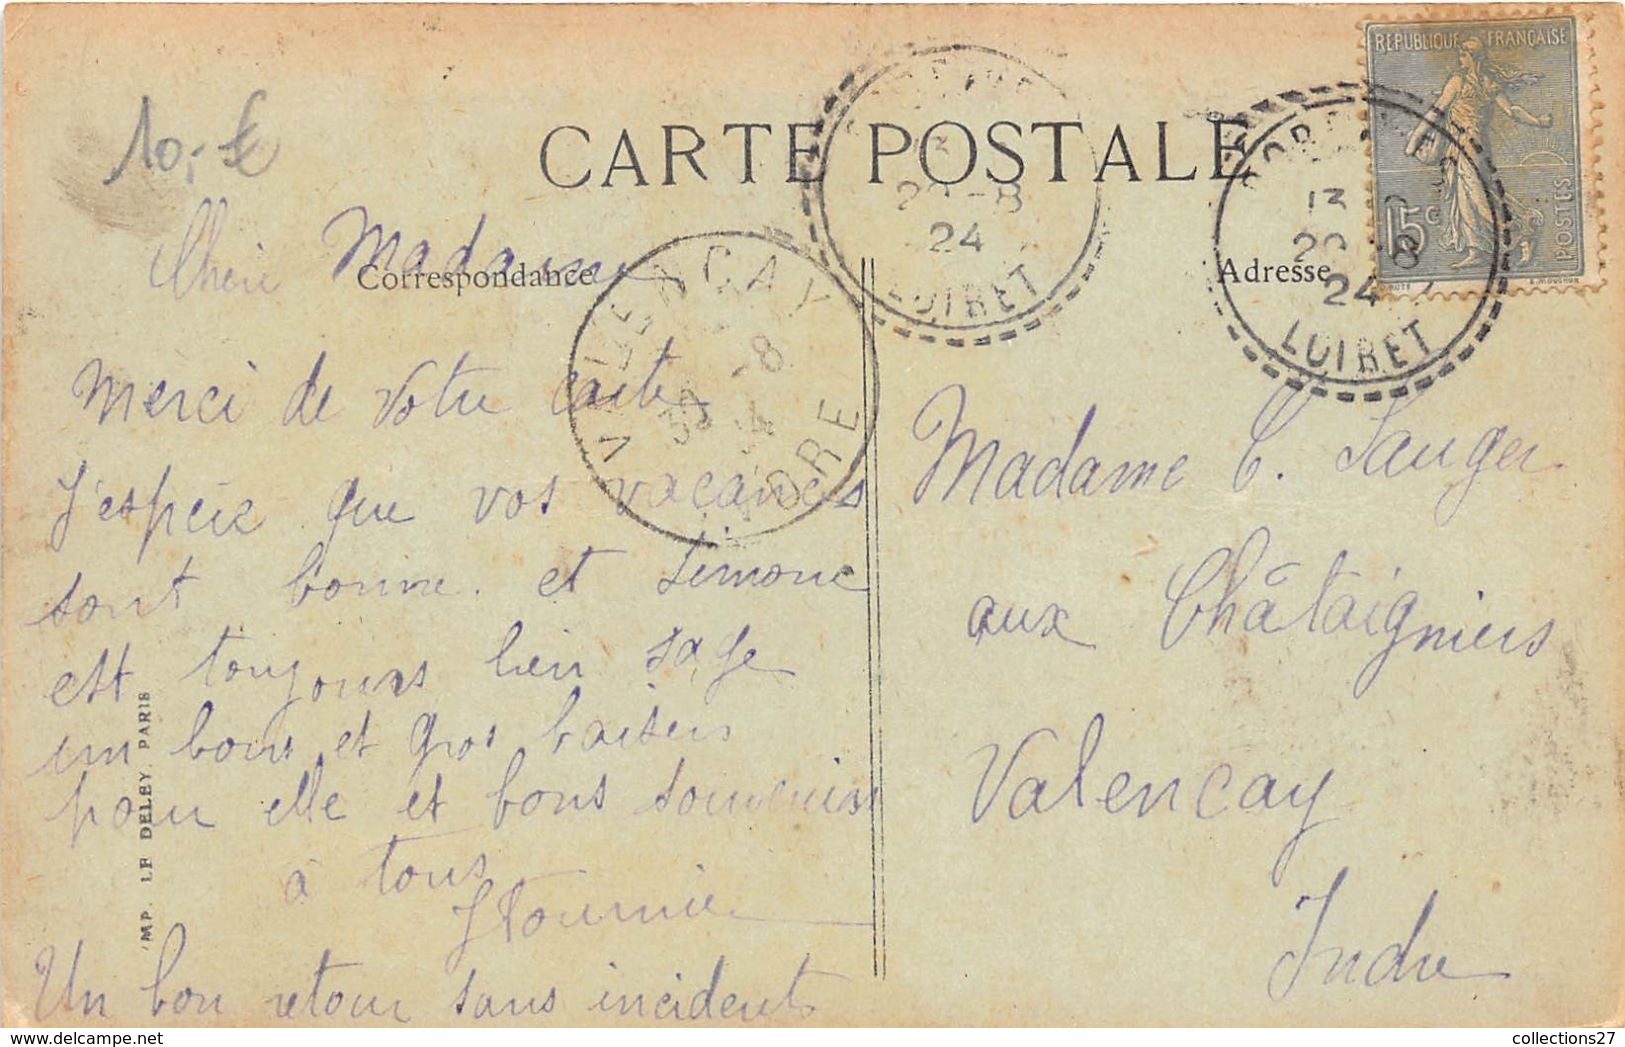 10,- €
CARTE POSTALE
RÉPUBLIQUE FRANÇAISE
15c
POSTES
13
29-8
24
LOIRET
13
29 8
24
LOIRET
Correspondance
Adresse
VALENCAY
30 -8
24
INDRE
Cheri Madame
Merci de votre carte
J'espere que vos vacances
sont bonne. et Simone
est toujours bien sage
un bons et gros baisers
pour elle et bons souvenirs
à tous
Un bon retour sans incidents
Madame C. Sauger
aux Châtaigniers
Valencay
Indre
IMP. LE DELEY, PARIS
collections27